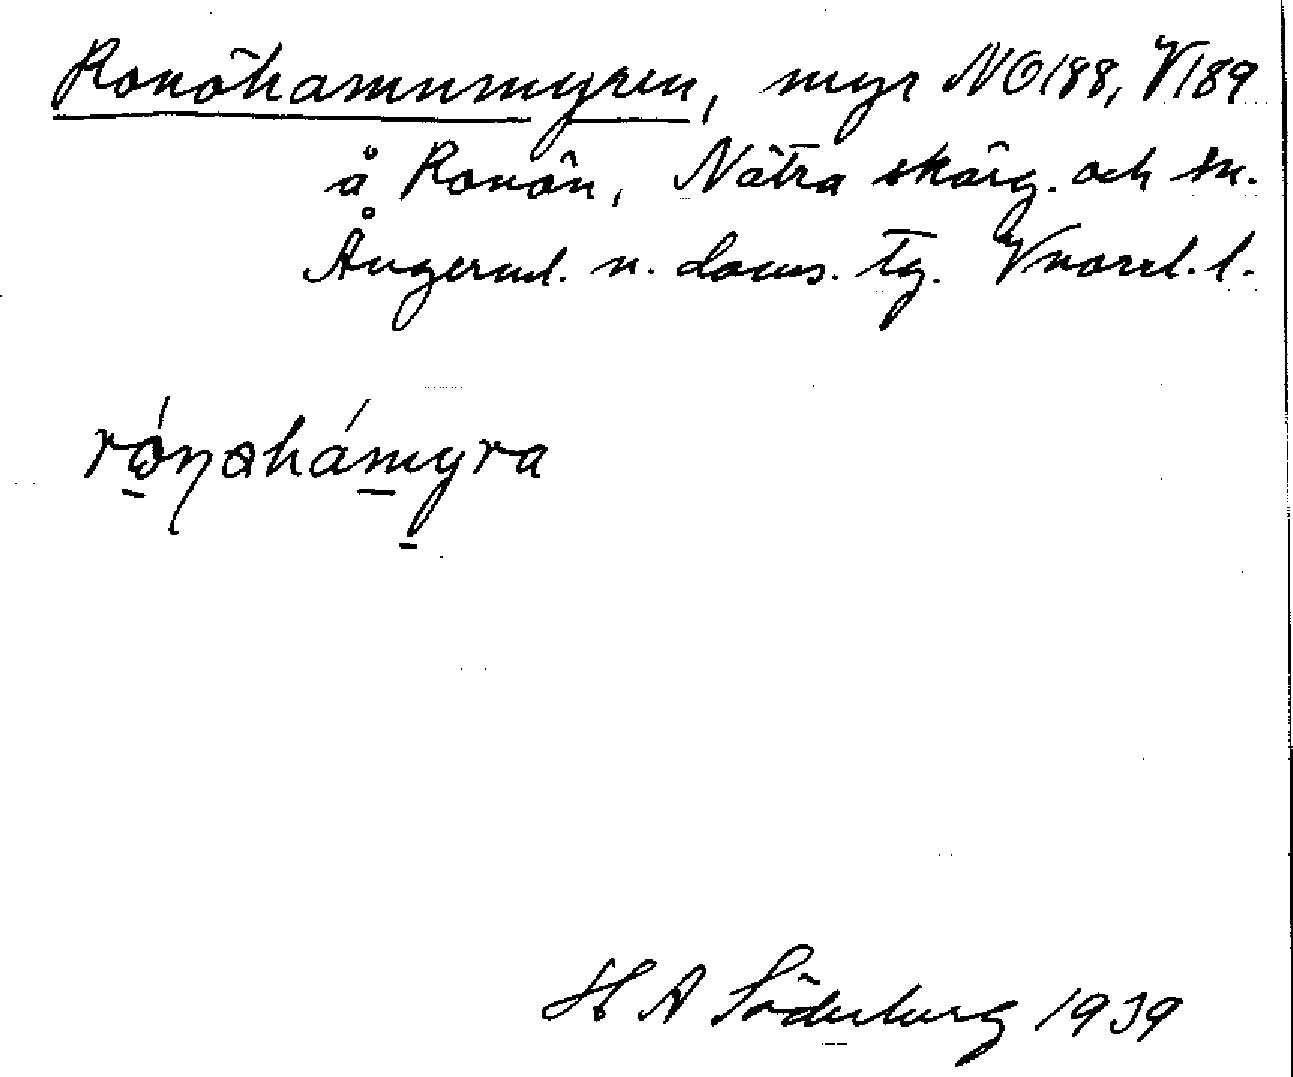 Ronöhamnmyren, myr NO188, V189
å Ronön, Nätra skärg. och sn.
Ångerml. n. doms. tg. Vnorrl. l.
rónøhámyra
H A Söderberg 1939